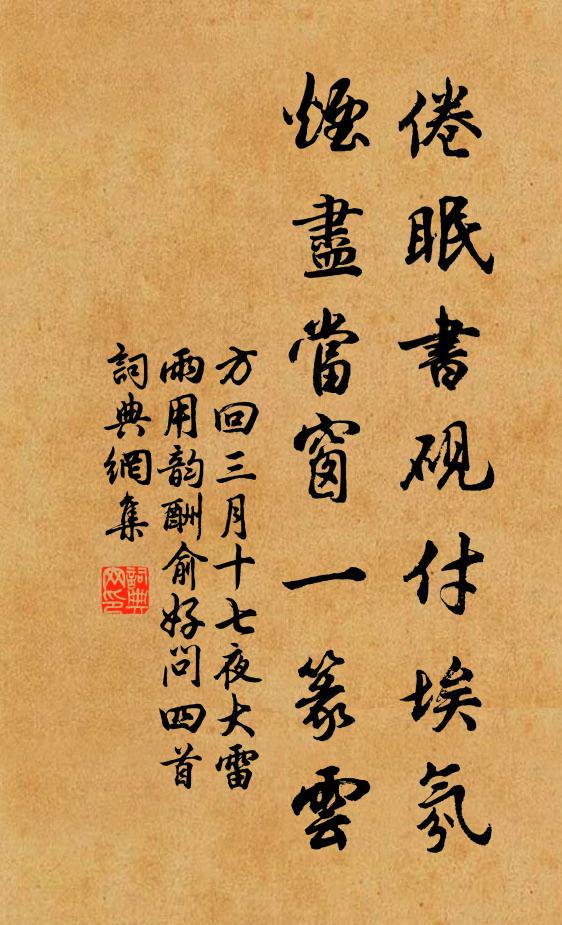 倦眠書硯付埃氛
煙盡當窗一篆雲
方回三月十七夜大雷
雨用韵酬俞好问四首
詞典網集
詞典网印